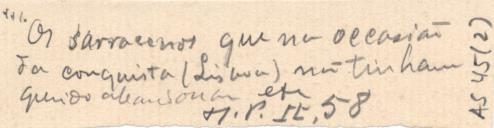 Os sarracenos que na occasião
da conquista (Lisboa) não tinham
querido abandonar etc
H. P. II, 58
AS 45 (2)